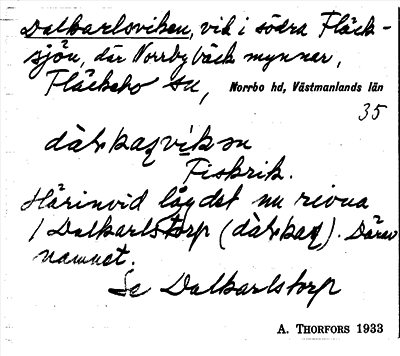 Dalkarlsviken, vid i södra Fläck-
sjön, där Norrbybäck mynnar,
Fläckebo sn, Norrbo hd, Västmanlands län
35
Fiskrik.
Härinvid låg det nu rivna
Dalkarlstorp. Därav
namnet.
Se Dalkarlstorp
A. THORFORS 1933